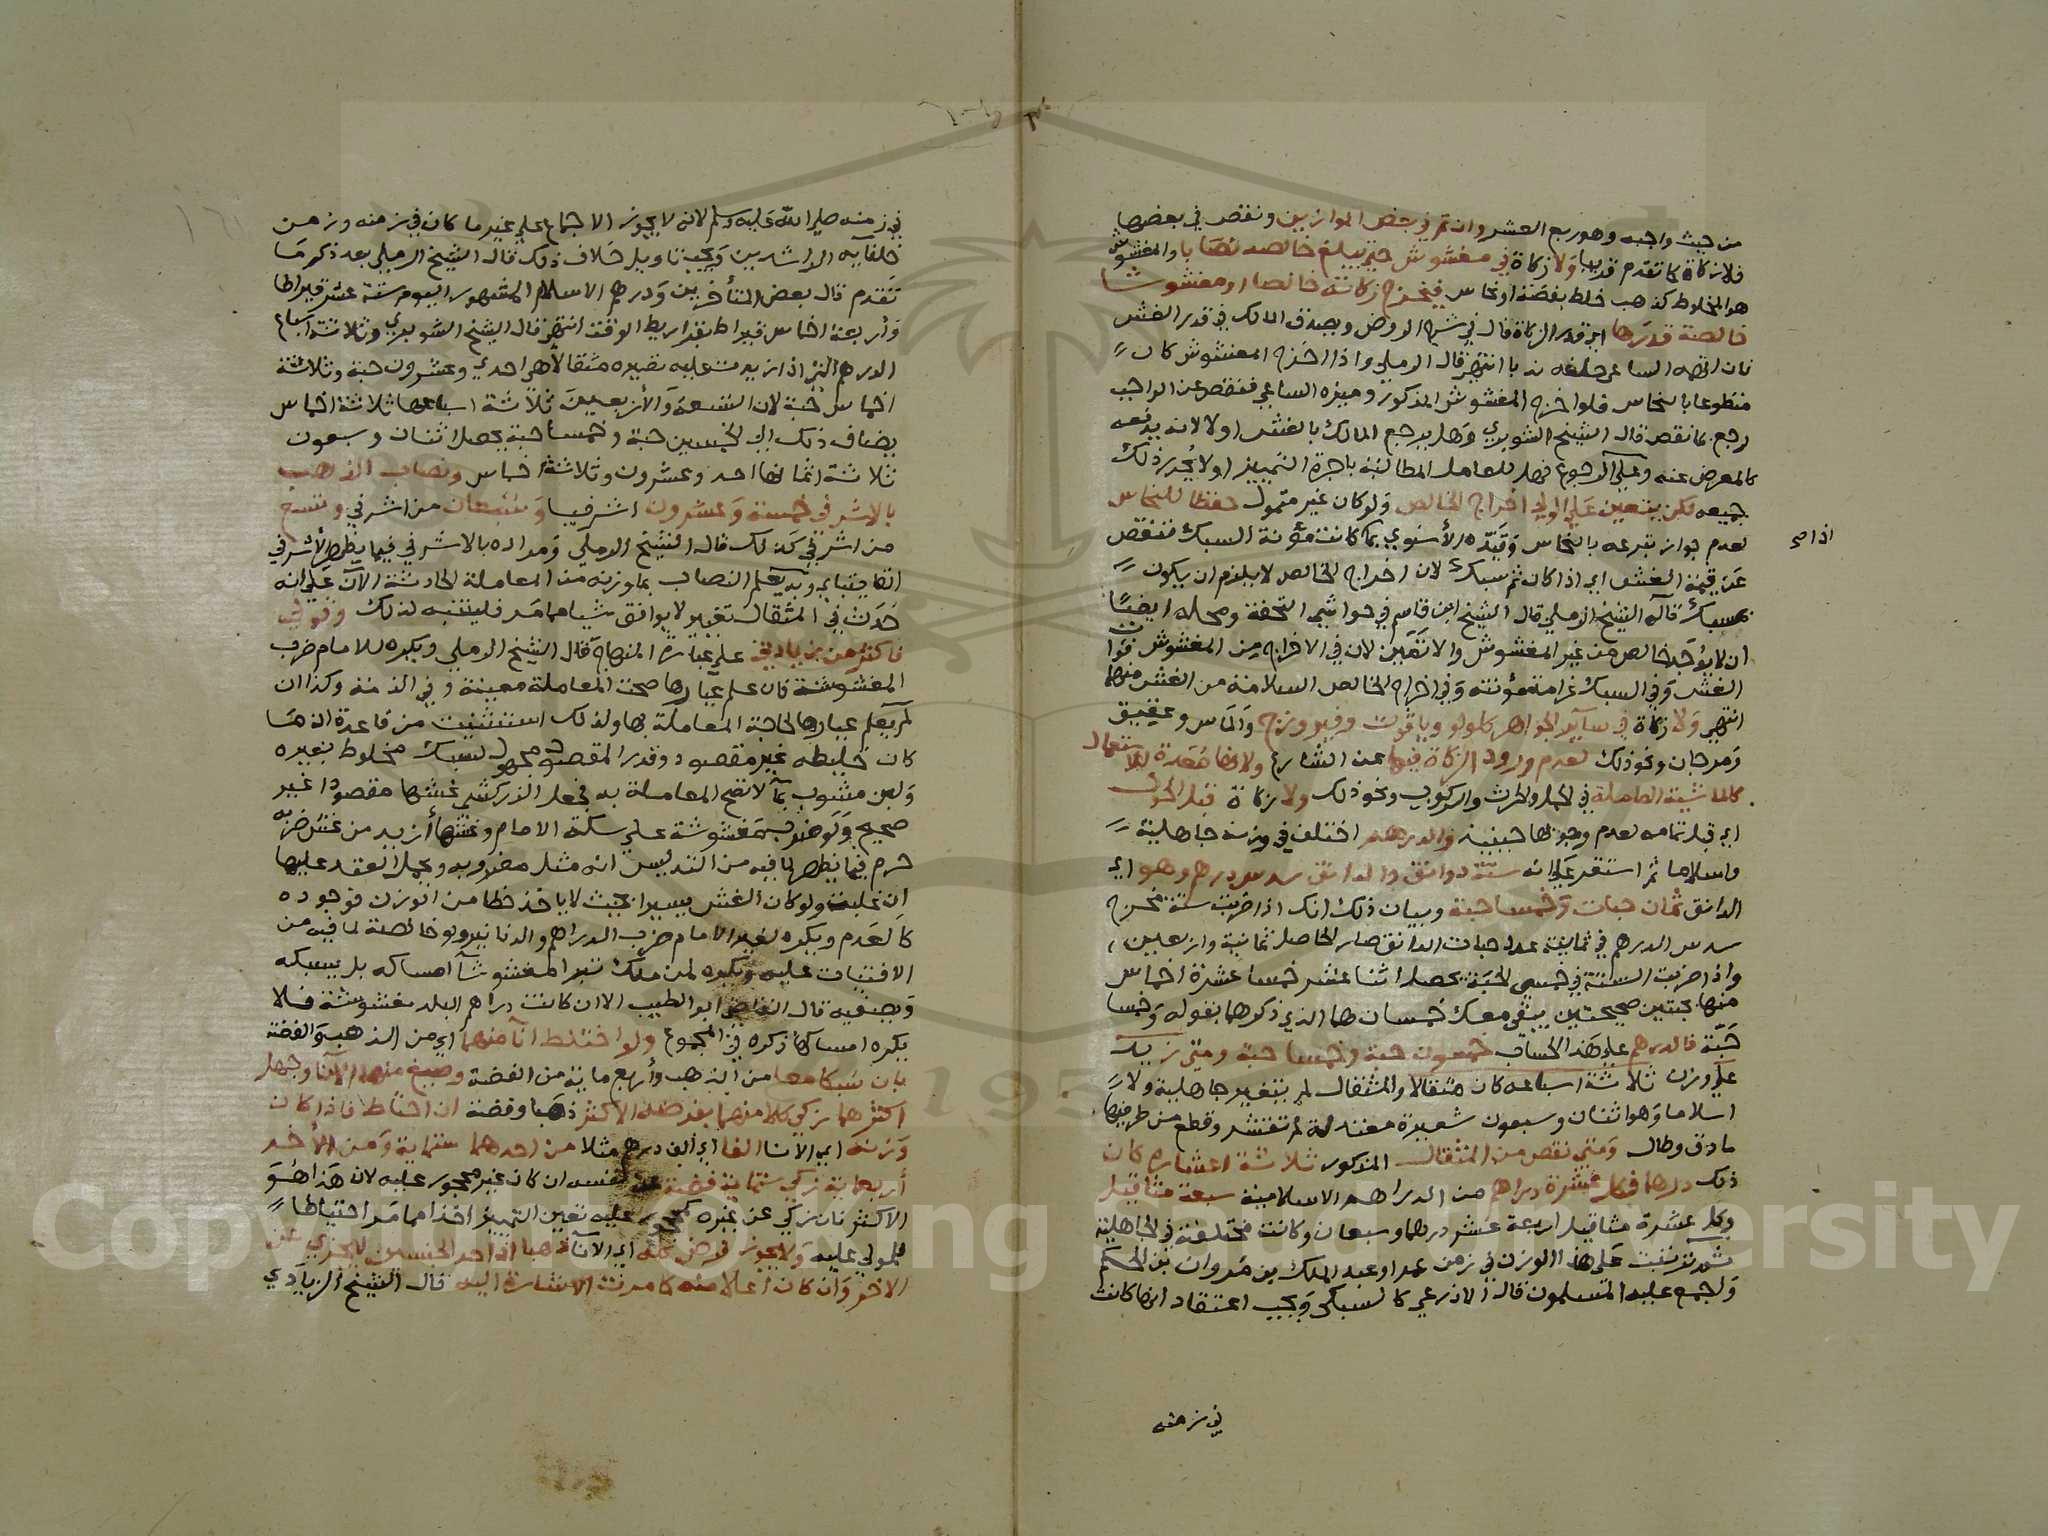 من حيث واجبه وهو ربع العشر وان تم في بعض الموازين ونقص في بعضها
فلا زكاة كما تقدم قريبا ولا زكاة في مغشوش حتى يبلغ خالصه نصابا والمغشوش
هو المخلوط كذهب خلط بفضة او نحاس فيخرج زكاته خالصا او مغشوشا
خالصه قدرها اي قدر الزكاة قال في شرح الروض ويصدق المالك في قدر الغش
فان اتهمه الساعي حلفه ندبا انتهى قال الرملي واذا اخرج المغشوش كان
متطوعا بالنحاس فلو اخرج المغشوش المذكور وميزه الساعي فنقص عن الواجب
رجع بما نقص قال الشيخ الشوبري وهل يرجع المالك بالغش او لا لانه بدفعه
كالمعرض عنه وعلى الرجوع فهل للعامل المطالبة باجرة التمييز او لا يحرر ذلك
جميعه لكن يتعين على الولي اخراج الخالص ولو كان غير متمول حفظا للنحاس
لعدم جواز تبرعه بالنحاس وقيده الأسنوي بما كانت مؤنة السبك فتنقص
اذا صح
عن قيمة الغش اي اذا كان ثم سبك لان اخراج الخالص لا يلزم ان يكون
بسبك قاله الشيخ الرملي قال الشيخ ابن قاسم في حواشي التحفة ومحله ايضا
ان لا يؤخذ خالص من غير المغشوش والا تعين لان في الاخراج من المغشوش فوات
الغش وفي السبك غرامة مؤنته وفي اخراج الخالص السلامة من الغش منهما
انتهى ولا زكاة في سائر الجواهر كلولو وياقوت وفيروزج والماس وعقيق
ومرجان ونحو ذلك لعدم ورود الزكاة فيها عن الشارع ولانها معدة للاستعمال
كالماشية العاملة في الحمل والحرث والركوب ونحو ذلك ولا زكاة قبل الحول
اي قبل تمامه لعدم وجوبها حينئذ والدرهم اختلف في وزنه جاهلية
واسلاما ثم استقر على انه ستة دوانق والدانق سدس درهم وهو اي
الدانق ثمان حبات وخمسا حبة وبيان ذلك انك اذا ضربت ستة مخرج
سدس الدرهم في ثمانية عدد حبات الدانق صار الحاصل ثمانية واربعين
واذا ضربت الستة في خمسي الحبة يحصل اثنا عشر خمسا عشرة اخماس
منها بحبتين صحيحتين يبقى معك خمسان هما الذي ذكرهما بقوله وخمسا
حبة فالدرهم على هذا الحساب خمسون حبة وخمسا حبة ومتى زيد
على وزن ثلاثة اسباعه كان مثقالا والمثقال لم يتغير جاهلية ولا
اسلاما وهو اثنان وسبعون شعيرة معتدلة لم تقشر وقطع من طرفيها
ما دق وطال ومتى نقص من المثقال المذكور ثلاثة اعشاره كان
ذلك درهما فكل عشرة دراهم من الدراهم الاسلامية سبعة مثاقيل
وكل عشرة مثاقيل اربعة عشر درهما وسبعان وكانت مختلفة في الجاهلية
ثم ضربت على هذا الوزن في زمن عمر او عبد الملك بن مروان بن الحكم
واجمع عليه المسلمون قال الاذرعي كالسبكي ويجب اعتقاد انها كانت
في زمنه
في زمنه صلى الله عليه وسلم لانه لا يجوز الاجماع على غير ما كان في زمنه وزمن
خلفائه الراشدين ويجب تاويل خلاف ذلك قال الشيخ الرملي بعد ذكر ما
تقدم قال بعض المتأخرين ودرهم الاسلام المشهور اليوم ستة عشر قيراطا
واربعة اخماس قيراط بقراريط الوقت انتهى قال الشيخ الشوبري وثلاثة اسباع
الدرهم التي اذا زيدت عليه تصيره مثقالا هي احدى وعشرون حبة وثلاثة
اخماس حبة لان التسعة والأربعين ثلاثة اسباعها ثلاثة اخماس
يضاف ذلك الى الخمسين حبة وخمسا حبة يحصل اثنان وسبعون
ثلاثة اثمانها احد وعشرون وثلاثة اخماس ونصاب الذهب
بالاشرفي خمسة وعشرون اشرفيا وسبعان من اشرفي وتسع
من اشرفي كذلك قال الشيخ الرملي ومراده بالاشرفي فيما يظهر الاشرفي
القايتباي وبه يعلم النصاب بما وزنه من المعاملة الحادثة الآن على انه
حدث في المثقال تغيير لا يوافق شيا مما مر فليتنبه لذلك وقولي
فاكثر من زيادتي على عبارة المنهاج قال الشيخ الرملي ويكره للامام ضرب
المغشوشة فان علم عيارها صحت المعاملة معينة وفي الذمة وكذا ان
لم يعلم عيارها لحاجة المعاملة بها ولذلك استثنيت من قاعدة الذ ما
كان خليطه غير مقصود وقدر المقصود مجهول كمسك مخلوط بغيره
ولبن مشوب بماء لا تصح المعاملة به فجعل الزركشي غشها مقصودا غير
صحيح ولو ضرب مغشوشة على سكة الامام وغشها أزيد من غش ضربه
حرم فيما يظهر لما فيه من التدليس انه مثل مضروبه ويحمل العقد عليها
ان غلبت ولو كان الغش يسيرا بحيث لا ياخذ خطا من الوزن فوجوده
كالعدم ويكره لغير الامام ضرب الدراهم والدنانير ولو خالصة لما فيه من
الافتيات عليه ويكره لمن ملك نقدا مغشوشا امساكه بل يسبكه
ويصفيه قال القاضي ابو الطيب الا ان كانت دراهم البلد مغشوشة فلا
يكره امساكها ذكره في المجموع ولو اختلط انا منهما اي من الذهب والفضة
بان سبكا معا من الذهب وأربع ماية من الفضة وصيغ منهما الآنا وجهل
اكثرهما زكى كلا منهما بفرضه الاكثر ذهبا وفضة ان احتاط فاذا كان
وزنه اي الانا الفا اي الف درهم مثلا من احدهما ستماية ومن الآخر
أربعماية زكى ستماية فضة عن نفسه ان كان غير محجور عليه لان هذا هو
الاكثر فان زكى عن غيره كمحجور عليه تعين التمييز اخذا مما مر احتياطا
للمولي عليه ولا يجوز فرض كله اي الانا ذهبا اذ احد الجنسين لا يجزي عن
الاخر وان كان اعلا منه كما مرت الاشارة اليه قال الشيخ الزيادي
Copyright © King Saud University
1957